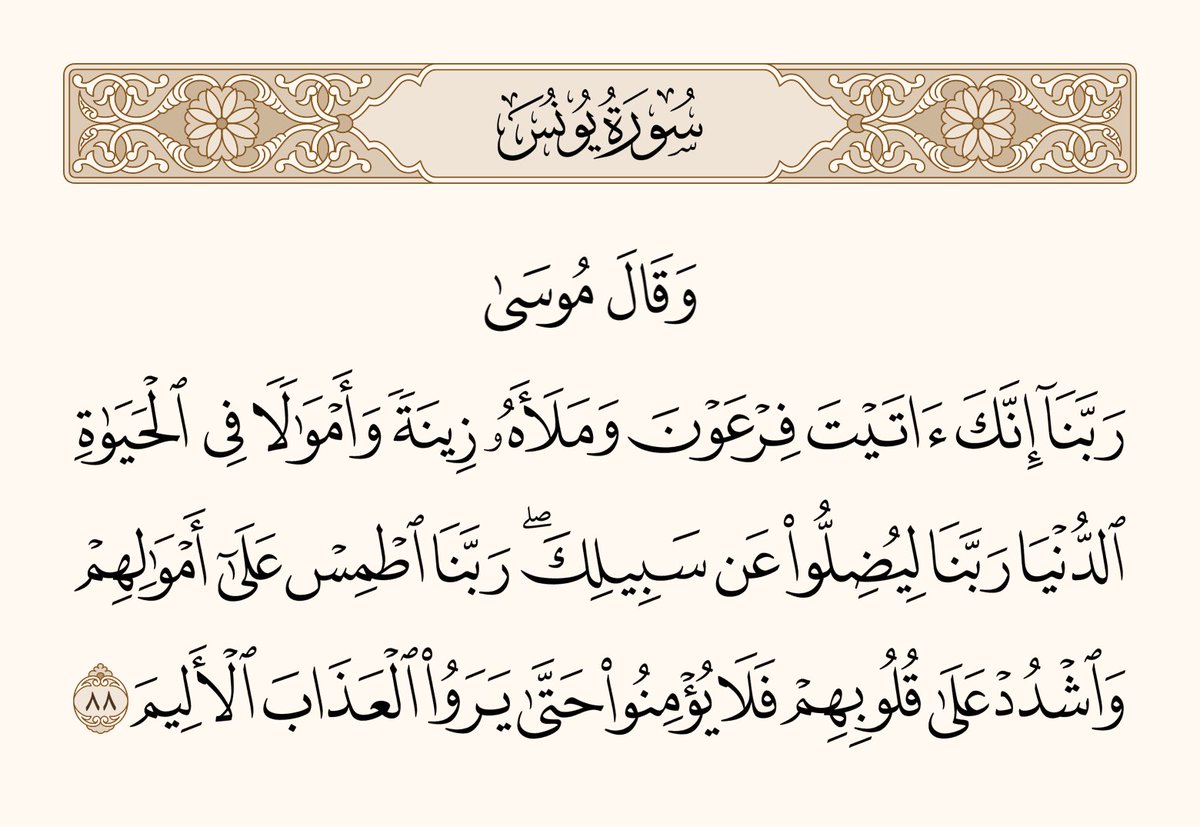 سُورَةُ يُونُسَ
وَقَالَ مُوسَىٰ
رَبَّنَآ إِنَّكَ ءَاتَيْتَ فِرْعَوْنَ وَمَلَأَهُۥ زِينَةٗ وَأَمْوَٰلٗا فِى ٱلْحَيَوٰةِ
ٱلدُّنْيَا رَبَّنَا لِيُضِلُّوا۟ عَن سَبِيلِكَ ۖ رَبَّنَا ٱطْمِسْ عَلَىٰٓ أَمْوَٰلِهِمْ
وَٱشْدُدْ عَلَىٰ قُلُوبِهِمْ فَلَا يُؤْمِنُوا۟ حَتَّىٰ يَرَوُا۟ ٱلْعَذَابَ ٱلْأَلِيمَ ٨٨